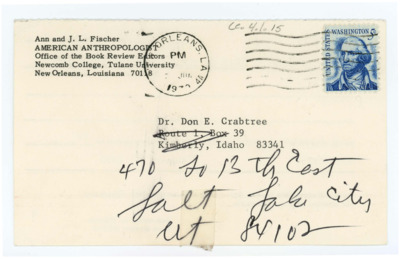 Ann and J. L. Fischer
AMERICAN ANTHROPOLOGIST
Office of the Book Review Editors
Newcomb College, Tulane University
New Orleans, Louisiana 70118
ORLEANS, LA
PM
WASHINGTON
5¢
UNITED STATES
Dr. Don E. Crabtree
Route 1, Box 39
Kimberly, Idaho 83341
470 So 13th East
Salt Lake City
Ut 84102